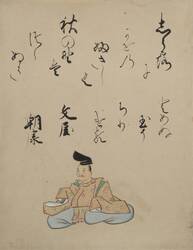 しら露
に
風の
ふきし
く
秋の野
は
つら
ぬき
とめぬ
玉そ
ちり
ける
文屋
朝康